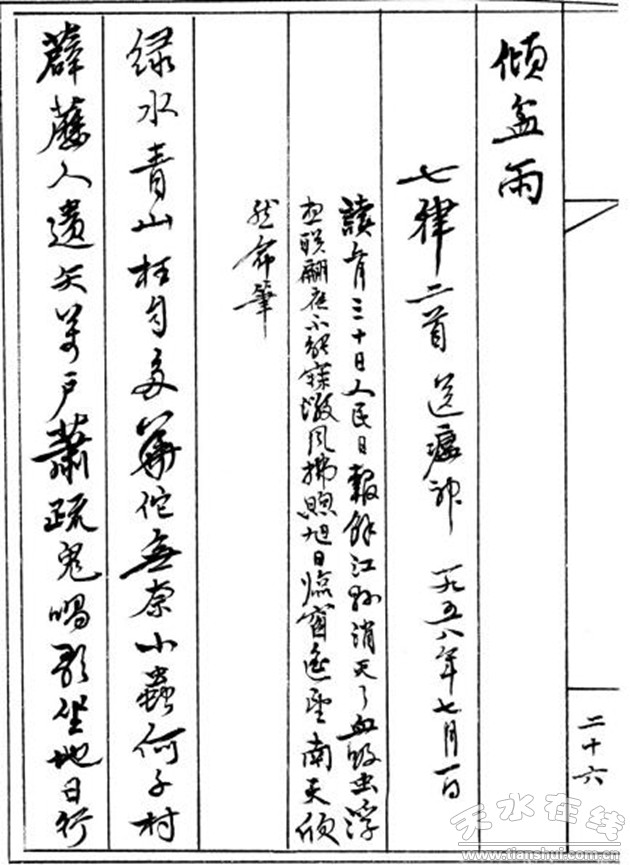 傾盆雨
七律二首 送瘟神 一九五八年七月一日
讀六月三十日人民日報餘江縣消灭了血吸虫浮
想联翩夜不能寐微风拂煦旭日臨窗遥望南天欣
然命筆
绿水青山枉自多華佗無奈小蟲何千村
薜蘿人遺矢萬戶蕭疏鬼唱歌坐地日行
二十六
天水在线
www.tianshui.com.cn